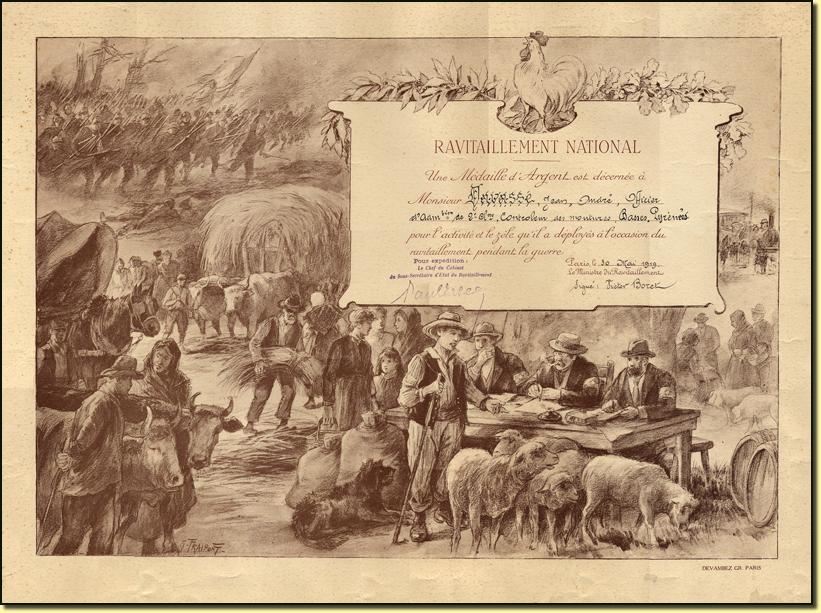 RAVITAILLEMENT NATIONAL
Une Médaille d'Argent est décernée à
Monsieur Davasse, Jean, André, Officier
d'Admon de 2e Cl., Controleur des moutures, Basses, Pyrénées
pour l'activité et le zèle qu'il a déployés à l'occasion du
ravitaillement pendant la guerre.
Pour expédition :
Le Chef du Cabinet
du Sous-Secrétaire d'Etat du Ravitaillement
Paris, le 30 Mai 1919.
Le Ministre du Ravitaillement
Signé : Victor Boret
FRAIPONT
DEVAMBEZ GR. PARIS